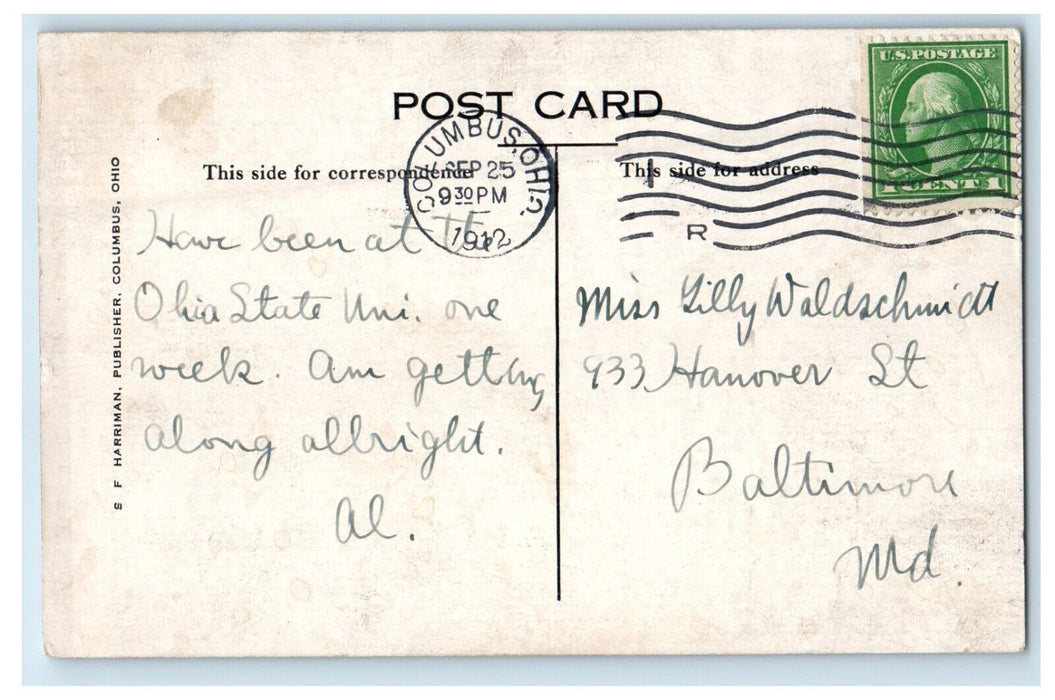 POST CARD
This side for correspondence
This side for address
COLUMBUS, OHIO.
SEP 25
9 30 PM
1912
R
U.S. POSTAGE
1 CENT 1
S F HARRIMAN, PUBLISHER, COLUMBUS, OHIO
Have been at Th
Ohio State Uni. one
week. Am getting
along allright.
Al.
Miss Lilly Waldschmidt
933 Hanover St
Baltimore
Md.